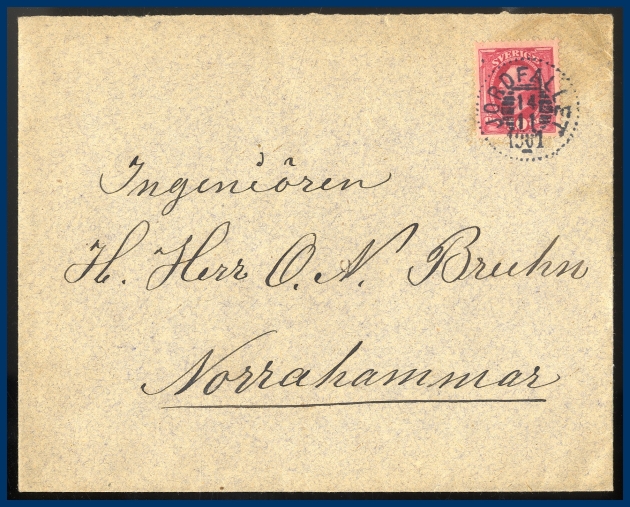 SVERIGE
JORDFALLET
14
11
1901
Ingeniören
H. Herr O. N. Bruhn
Norrahammar